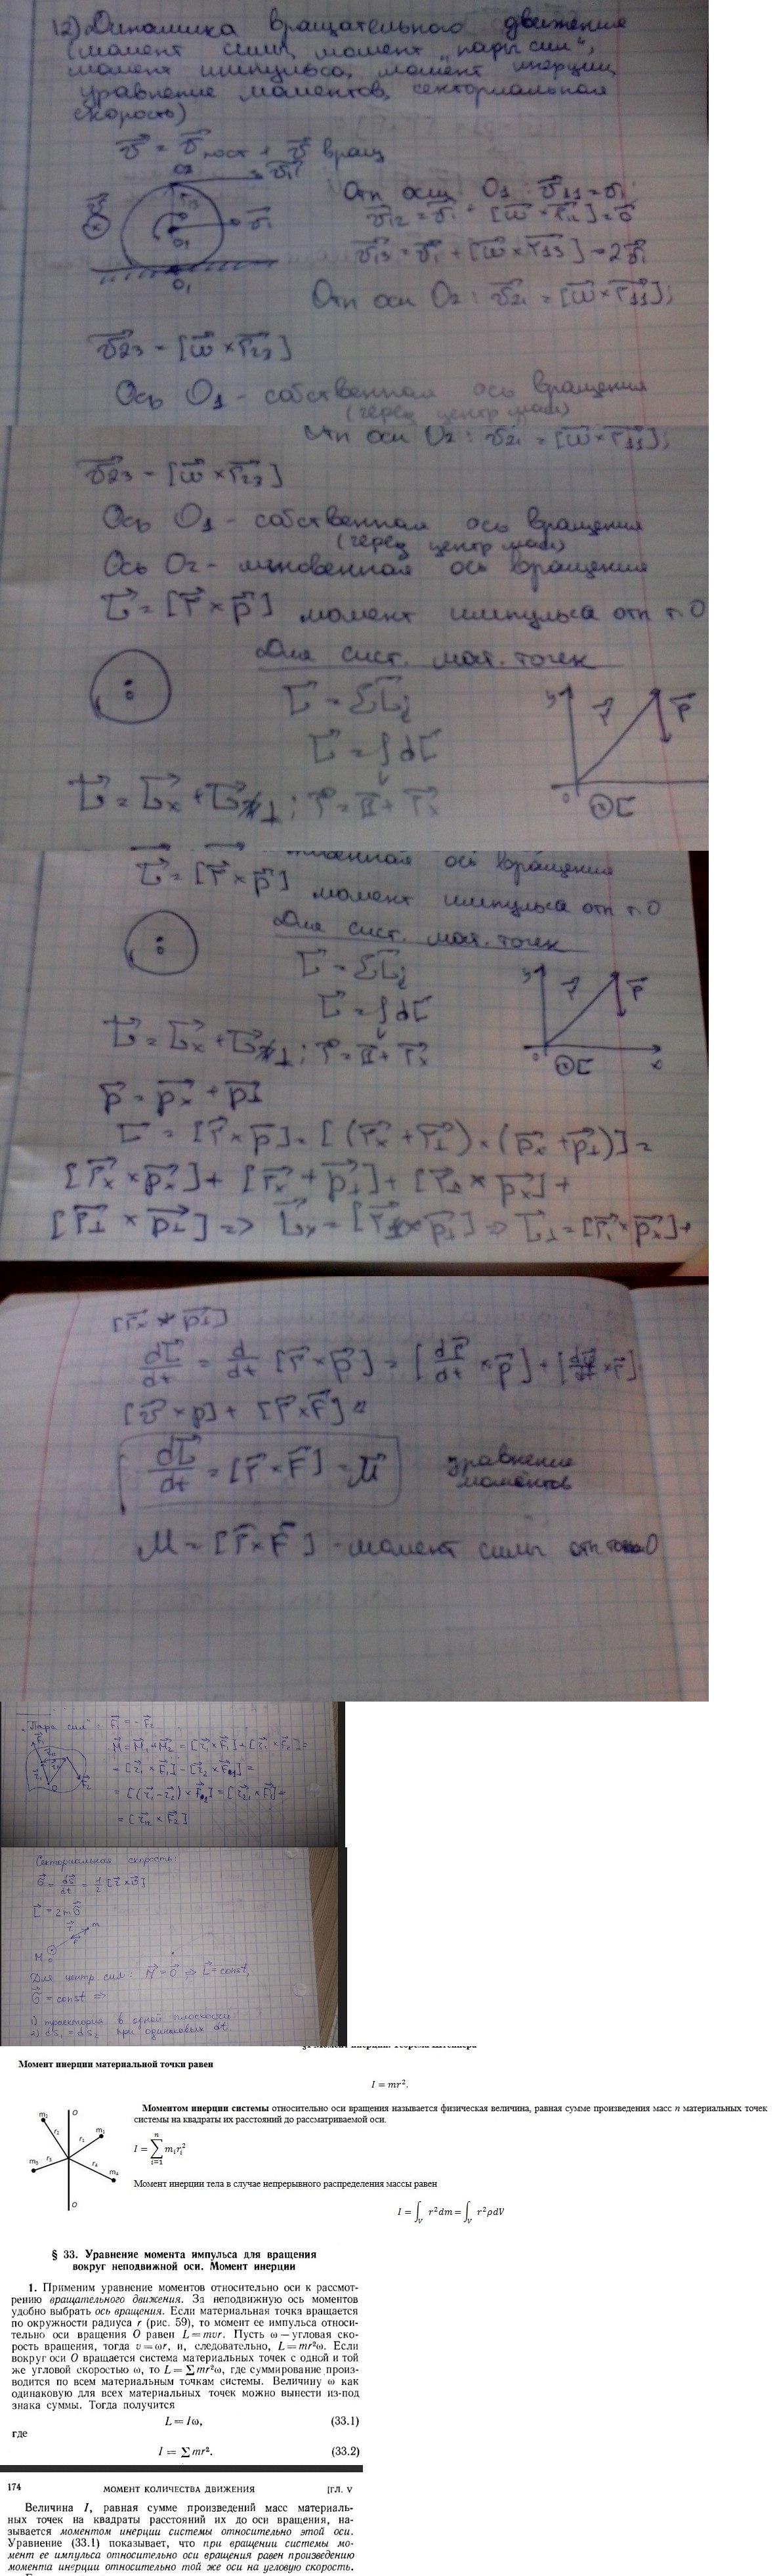 12) Динамика вращательного движения
(момент силы, момент „пары сил",
момент импульса, момент инерции,
уравнение моментов, секториальная
скорость)
v⃗ = v⃗пост + v⃗ вращ
O2 v⃗1
v⃗1
O1
O1
Отн оси O1: v⃗11 = v⃗1
v⃗12 = v⃗1 + [ω⃗ × r⃗12] = 0
v⃗13 = v⃗1 + [ω⃗ × r⃗13] = 2v⃗1
Отн оси O2: v⃗21 = [ω⃗ × r⃗11];
v⃗23 = [ω⃗ × r⃗23]
Ось O1 - собственная ось вращения
(через центр масс)
Отн оси O2: v⃗21 = [ω⃗ × r⃗11];
v⃗23 = [ω⃗ × r⃗23]
Ось O1 - собственная ось вращения
(через центр масс)
Ось O2 - мгновенная ось вращения
L⃗ = [r⃗ × p⃗] момент импульса отн т. O
Для сист. мат. точек
L⃗ = ΣL⃗i
L⃗ = ∫dL⃗
y r⃗ p⃗
L⃗ = L⃗x + L⃗⊥;
0 L⃗
ось вращения
L⃗ = [r⃗ × p⃗] момент импульса отн т. O
Для сист. мат. точек
L⃗ = ΣL⃗i
L⃗ = ∫dL⃗
y r⃗ p⃗
L⃗ = L⃗x + L⃗⊥;
0 L⃗ x
p⃗ = p⃗x + p⃗⊥
L⃗ = [r⃗ × p⃗] = [(r⃗x + r⃗⊥) × (p⃗x + p⃗⊥)] =
[r⃗x × p⃗x] + [r⃗x + p⃗⊥] + [r⃗⊥ × p⃗x] +
[r⃗⊥ × p⃗⊥] => L⃗x = [r⃗⊥ × p⃗⊥] => L⃗⊥ = [r⃗⊥ × p⃗x] +
[r⃗x × p⃗⊥]
dL⃗/dt = d/dt [r⃗ × p⃗] = [dr⃗/dt × p⃗] + [dp⃗/dt × r⃗]
[v⃗ × p] + [r⃗ × F⃗] =
dL⃗/dt = [r⃗ × F⃗] = M⃗ уравнение
моментов
M = [r⃗ × F⃗] - момент силы отн точки O
„Пара сил": F⃗1 = - F⃗2
M⃗ = M⃗1 + M⃗2 = [r⃗1 × F⃗1] + [r⃗2 × F⃗2] =
= [r⃗1 × F⃗1] - [r⃗2 × F⃗1] =
= [(r⃗1 - r⃗2) × F⃗1] = [r⃗21 × F⃗1] =
= [r⃗12 × F⃗2]
Секториальная скорость:
σ⃗ = dS⃗/dt = 1/2 [r⃗ × v⃗]
L⃗ = 2mσ⃗
r⃗ m
F⃗
M O
Для центр сил: M⃗ = 0⃗ => L⃗ = const,
σ⃗ = const =>
1) траектория в одной плоскости
2) dS1 = dS2 при одинаковых dt.
§1 Момент инерции. Теорема Штейнера
Момент инерции материальной точки равен
I = mr².
Моментом инерции системы относительно оси вращения называется физическая величина, равная сумме произведения масс n материальных точек
системы на квадраты их расстояний до рассматриваемой оси.
m₂ O m₁
r₂ r₁
m₃ r₃ r₄ m₄
O
I = ∑ᵢ₌₁ⁿ mᵢrᵢ²
Момент инерции тела в случае непрерывного распределения массы равен
I = ∫V r²dm = ∫V r²ρdV
§ 33. Уравнение момента импульса для вращения
вокруг неподвижной оси. Момент инерции
1. Применим уравнение моментов относительно оси к рассмот-
рению вращательного движения. За неподвижную ось моментов
удобно выбрать ось вращения. Если материальная точка вращается
по окружности радиуса r (рис. 59), то момент ее импульса относи-
тельно оси вращения O равен L = mvr. Пусть ω — угловая ско-
рость вращения, тогда v = ωr, и, следовательно, L = mr²ω. Если
вокруг оси O вращается система материальных точек с одной и той
же угловой скоростью ω, то L = ∑mr²ω, где суммирование произ-
водится по всем материальным точкам системы. Величину ω как
одинаковую для всех материальных точек можно вынести из-под
знака суммы. Тогда получится
L = Iω, (33.1)
где
I = ∑mr². (33.2)
174 МОМЕНТ КОЛИЧЕСТВА ДВИЖЕНИЯ [ГЛ. V
Величина I, равная сумме произведений масс материаль-
ных точек на квадраты расстояний их до оси вращения, на-
зывается моментом инерции системы относительно этой оси.
Уравнение (33.1) показывает, что при вращении системы мо-
мент ее импульса относительно оси вращения равен произведению
момента инерции относительно той же оси на угловую скорость.